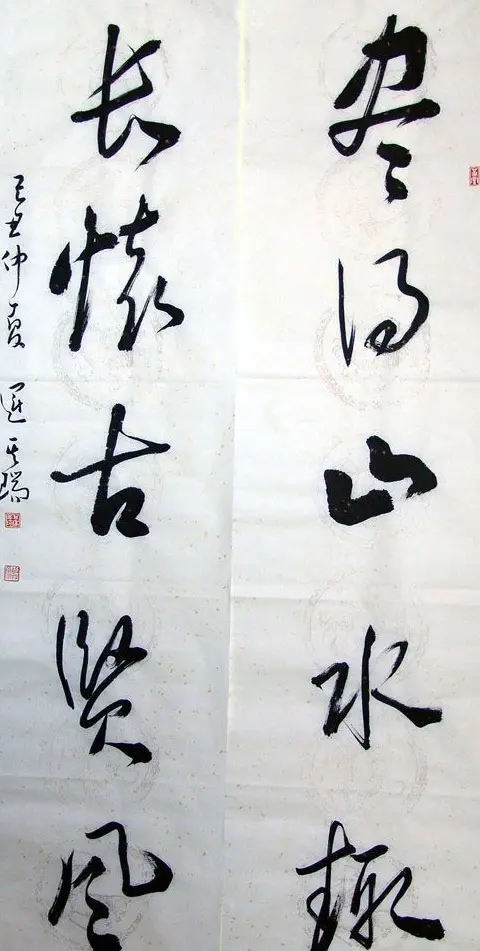 尽得山水趣
长怀古贤风
己丑仲夏